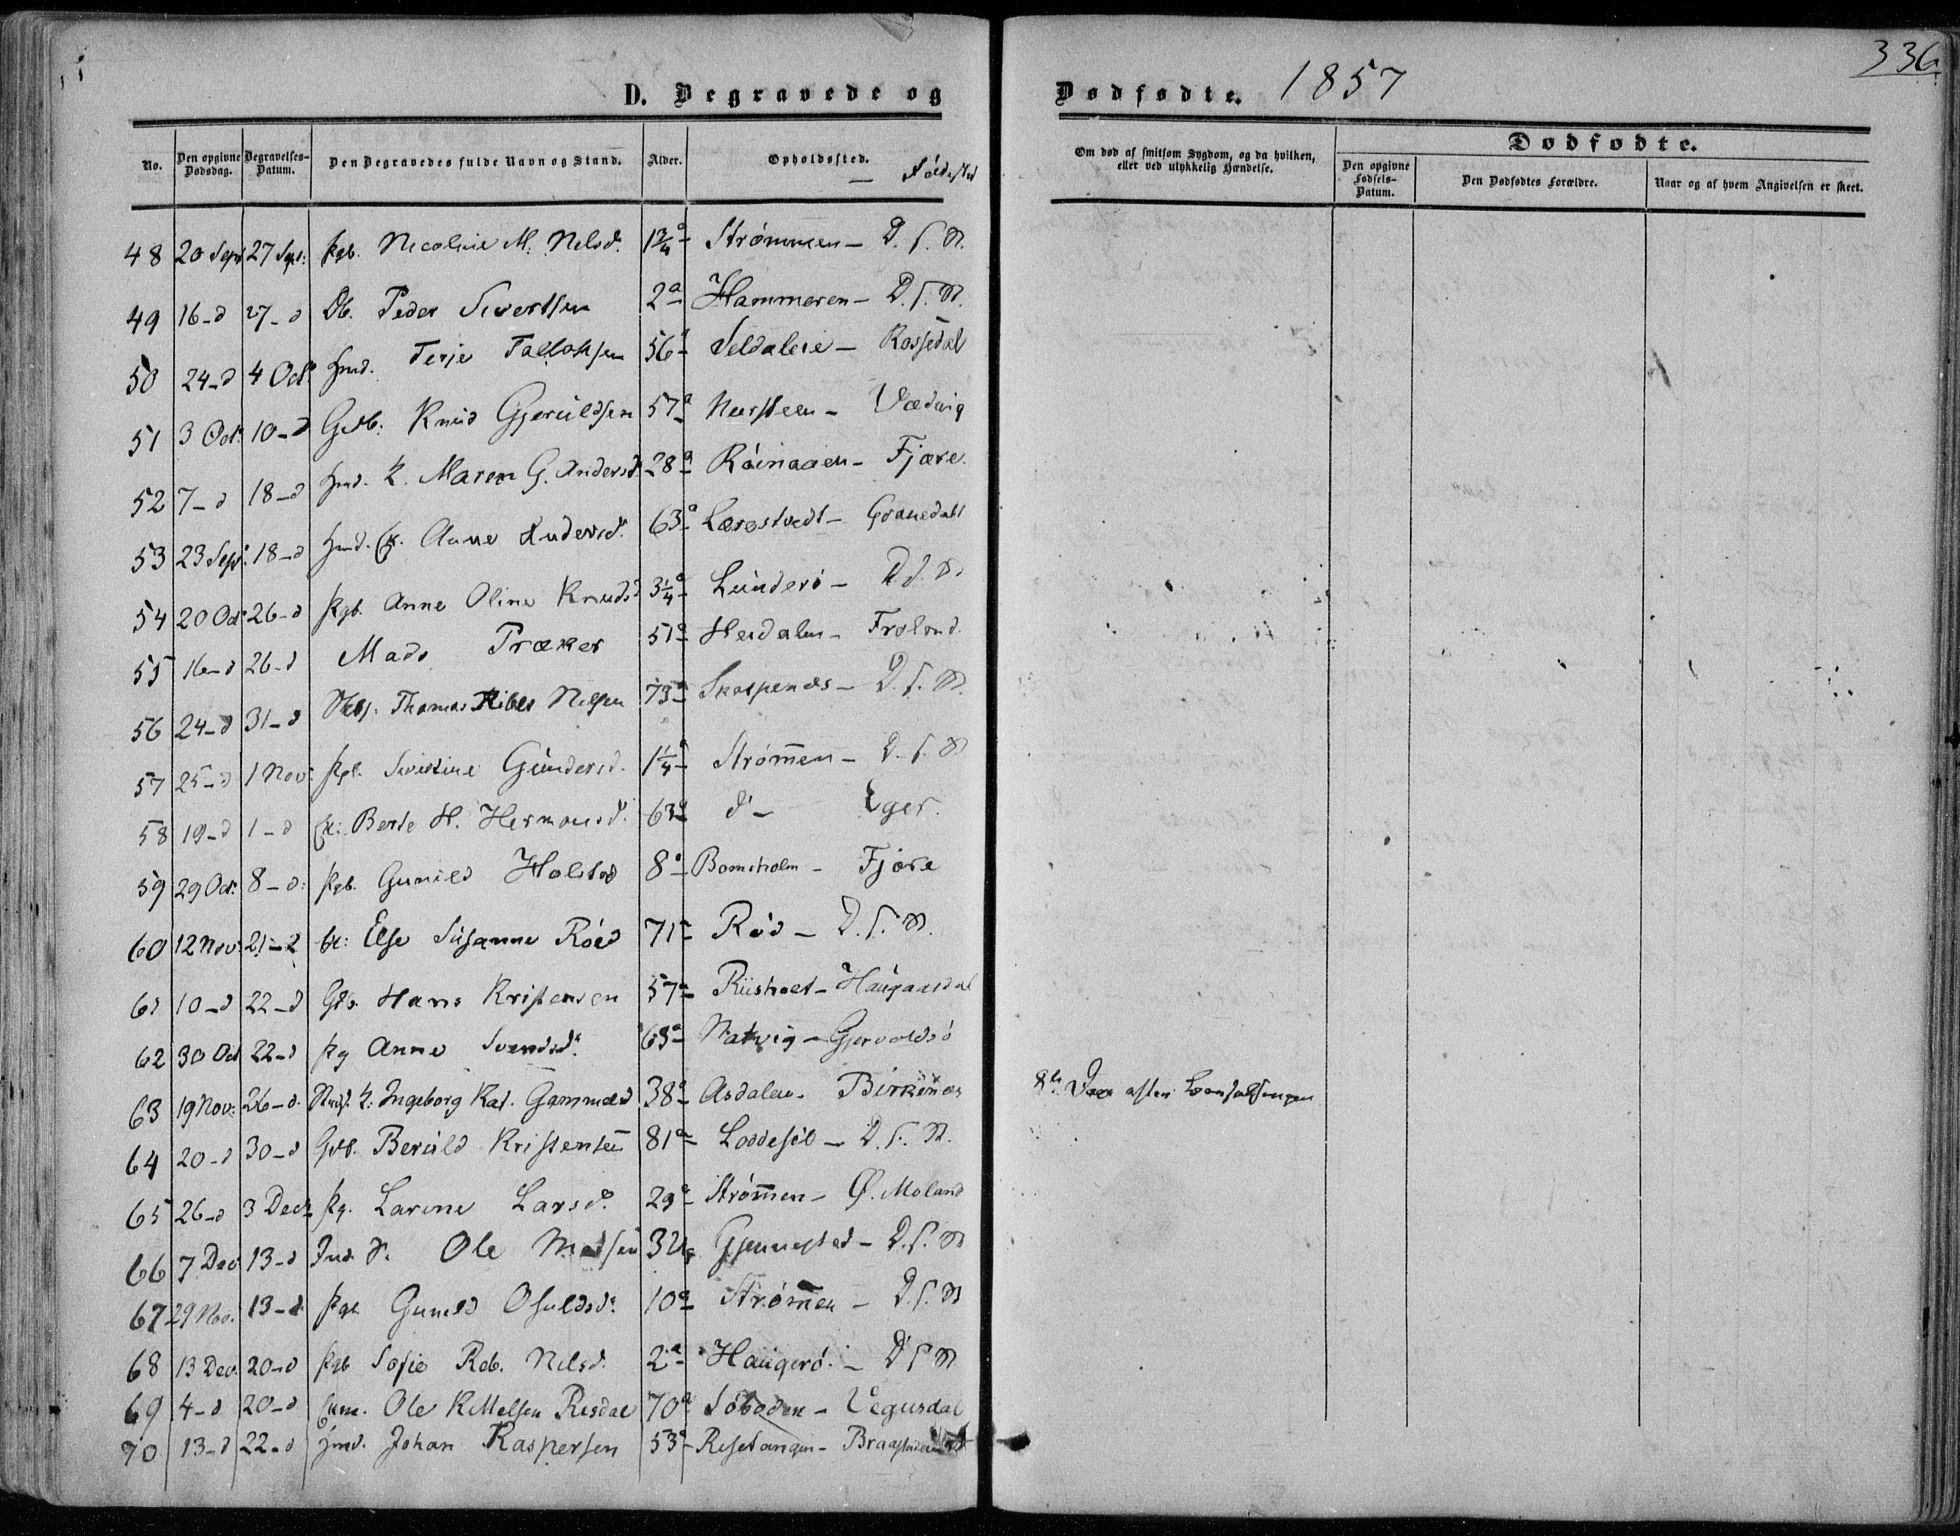 336
D. Begravede og Dødfødte. 1857
No. Den opgivne Dødsdag. Begravelses-Datum. Den Begravedes fulde Navn og Stand. Alder. Opholdssted. — Födested
Om død af smitsom Sygdom, og da hvilken, eller ved ulykkelig Hændelse.
Dødfødte.
Den opgivne Fødsels-Datum. Den Dødfødtes Forældre. Naar og af hvem Angivelsen er skeet.
48 20 Sept 27 Sept: Pgb. Nicoline M. Nelsd. 1¾ a Strømmen — D. S. N.
49 16 - d 27 - d Db. Peder Sivertsen 2 a Hammeren — D. S. N.
50 24 - d 4 Oct. Hmd. Terje Tallaksen 56 a Seldaleie — Rossedal
51 3 Oct. 10 - d Gdb. Knud Gjeruldsen 57 a Nersteen — Vædvig
52 7 - d 18 - d Hmd. K. Maren G. Andersd. 28 a Röinaaen — Fjære.
53 23 Sept: 18 - d Hmd. Anne Andersd. 63 a Lærestvedt — Granedalt
54 20 Oct 26 - d Pgb. Anne Oline Knudsd 3¼ a Lünderö — D. S. N.
55 16 - d 26 - d Mads Træker 51 a Heidalen — Froland.
56 24 - d 31 - d Thomas Ribes Nelsen 73 a Skarpenæs — D. S. N.
57 25 - d 1 Nov: Pgb. Sivertine Gündersd. 1¼ a Strømmen — D. S. N.
58 19 - d 1 - d Berte H. Hermansd. 63 a d° — Eger.
59 29 Oct. 8 - d: Pgb. Gunild Holstad 8 a Bomsholm — Fjære
60 12 Nov: 21 - d Else Süsanne Röed 71 a Röd — D. S. N.
61 10 - d 22 - d Gdb. Hans Kristensen 57 a Haügaasdal
62 30 Oct 22 - d Pg Anne Svendsd. 63 a Natvig — Gjervoldsö
63 19 Nov: 26 - d. K. Ingeborg Kat. Gammelsd 38 a Asdalen. Birkenæs 8de Dag efter Løsladelsen
64 20 - d 30 - d Gdb. Berüld Kristensen 81 a Loddesöl — D. S. N.
65 26 - d 3 Dec. Pg. Larine Larsd. 29 a Strømmen — Ø. Moland
66 7 Dec 13 - d Ind. N. Ole Madsen 32 a Gjennestad — D. S. N
67 29 Nov. 13 - d. Pgb. Gunild Osuldsd. 10 a Strømmen — D. S. N
68 13 Dec. 20 - d Pgb Sofie Reb. Nelsd. 2 a Haügerö. — D S N
69 4 - d 20 - d Ole K. Melsen Risdal 70 a Söboden — Vegusdal
70 13 - d 22 - d Hmd. Johan Kaspersen 53 a Resetangen —